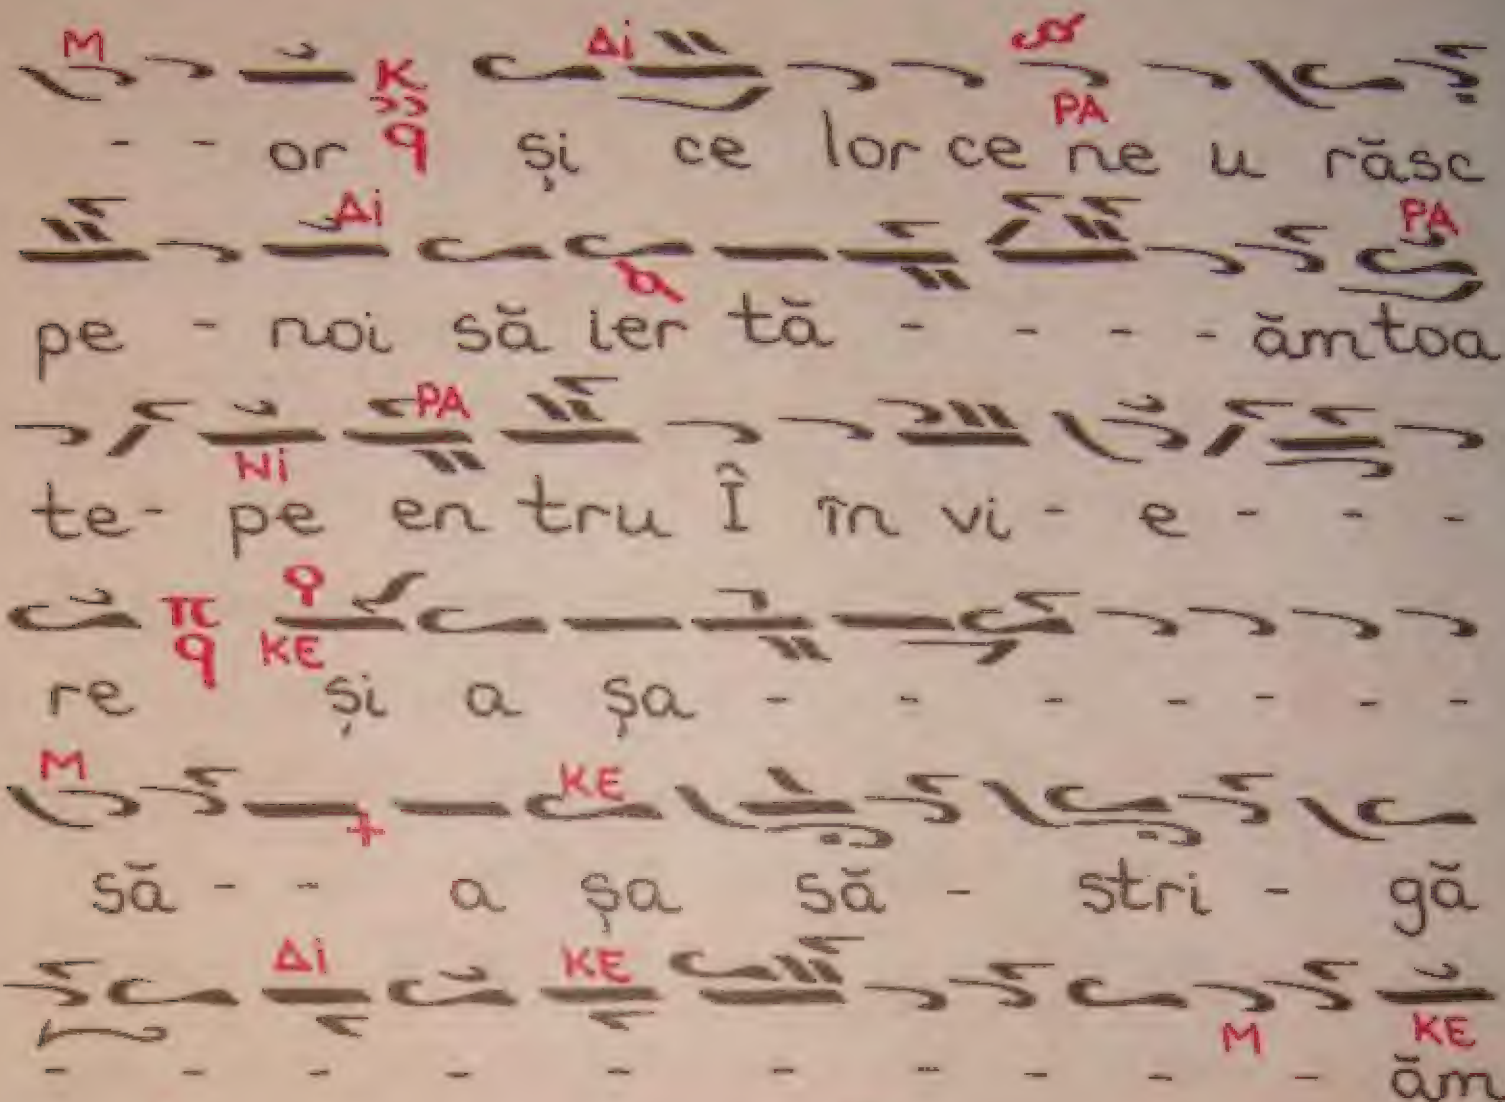 M K Δi PA
- - or q și ce lor ce ne u răsc
Δi PA
pe - noi să ier tă - - - - ăm toa
PA Ni
te - pe en tru Î în vi - e - - -
π q KE
re și a șa - - - - - -
M KE
să - - a șa să - stri - gă
Δi KE M KE
- - - - - - - - - - ăm